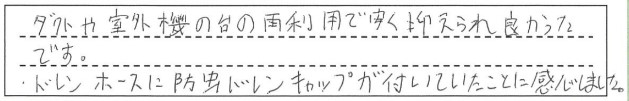 ダクトや室外機の台の再利用で安く抑えられ良かった
です。
・ドレンホースに防虫ドレンキャップが付いていたことに感心しました。